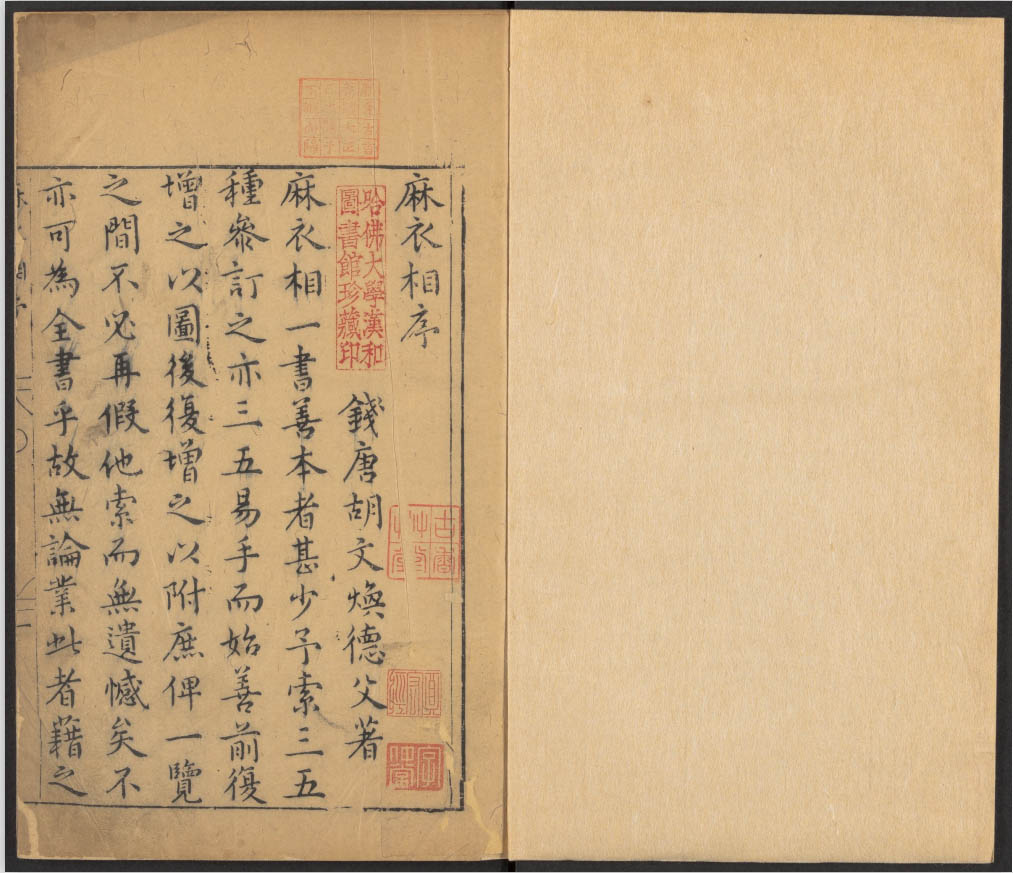 麻衣相序
錢唐胡文煥德父著
麻衣相一書善本者甚少予索三五
種參訂之亦三五易手而始善前復
增之以圖後復增之以附庶俾一覽
之間不必再假他索而無遺憾矣不
亦可為全書乎故無論業此者藉之
哈佛大學漢和
圖書館珍藏印